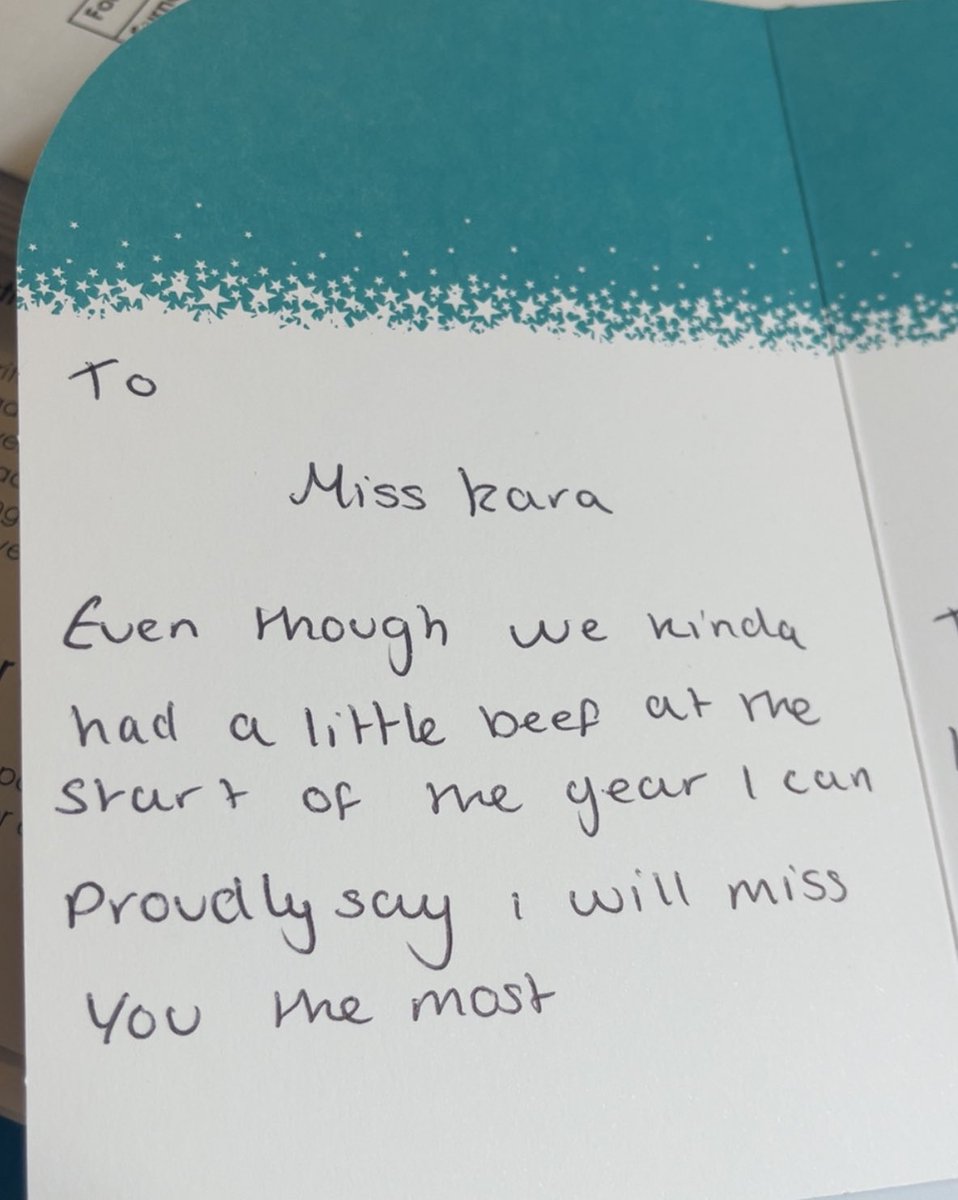 To
Miss kara
Even though we kinda
had a little beef at the
start of the year I can
Proudly say i will miss
You the most